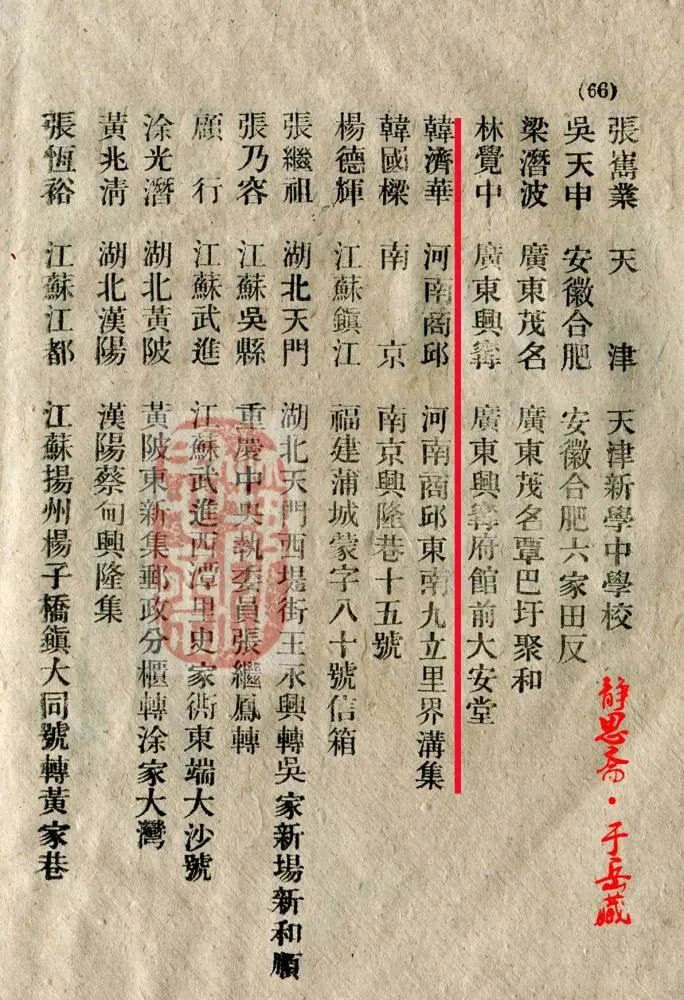 (66)
張雋業 天津 天津新學中學校
吳天申 安徽合肥 安徽合肥六家田反
梁潛波 廣東茂名 廣東茂名覃巴圩聚和
林覺中 廣東興寧 廣東興寧府館前大安堂
韓濟華 河南商邱 河南商邱東南九立里界溝集
韓國樑 南京 南京興隆巷十五號
楊德輝 江蘇鎮江 福建蒲城蒙字八十號信箱
張繼祖 湖北天門 湖北天門西堤街王永興轉吳家新場新和順
張乃容 江蘇吳縣 重慶中央執委員張繼鳳轉
顧行 江蘇武進 江蘇武進西潭里史家衖東端大沙號
涂光潛 湖北黃陂 黃陂東新集郵政分櫃轉涂家大灣
黃兆淸 湖北漢陽 漢陽蔡甸興隆集
張恆裕 江蘇江都 江蘇揚州楊子橋鎮大同號轉黃家巷
静思斋·于岳藏